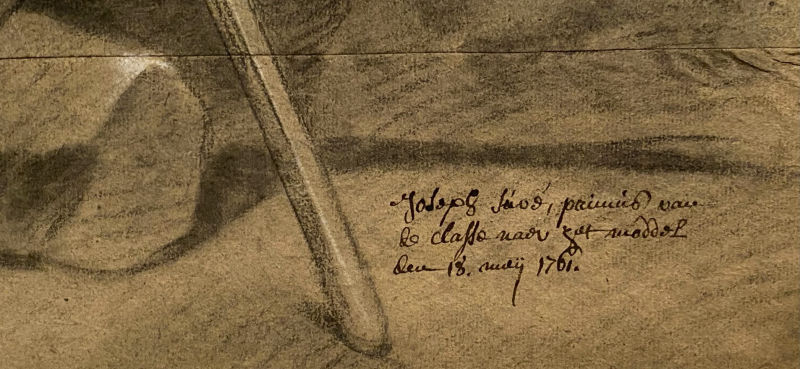 Joseph Sùvé, primus van
de classe naer het moddel
den 18. meij 1761.